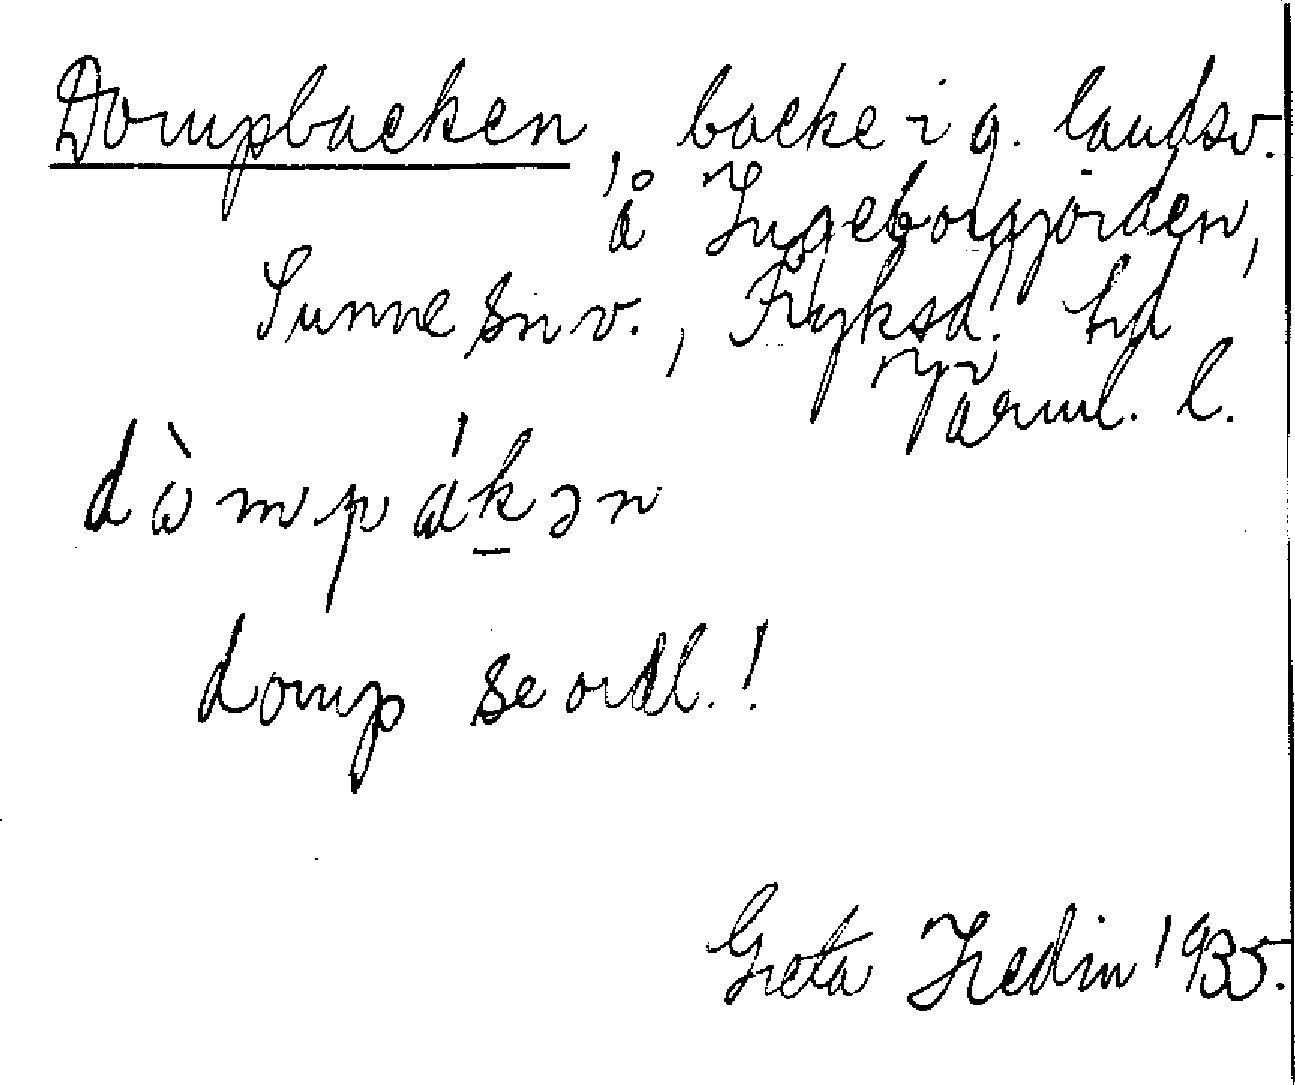 Dompbacken, backe i g. landsv.
å Ingeborgjorden,
Sunne sn v., Fryksd. hd
Värml. l.
dòmpákən
domp se ordl.!
Greta Hedin 1935.